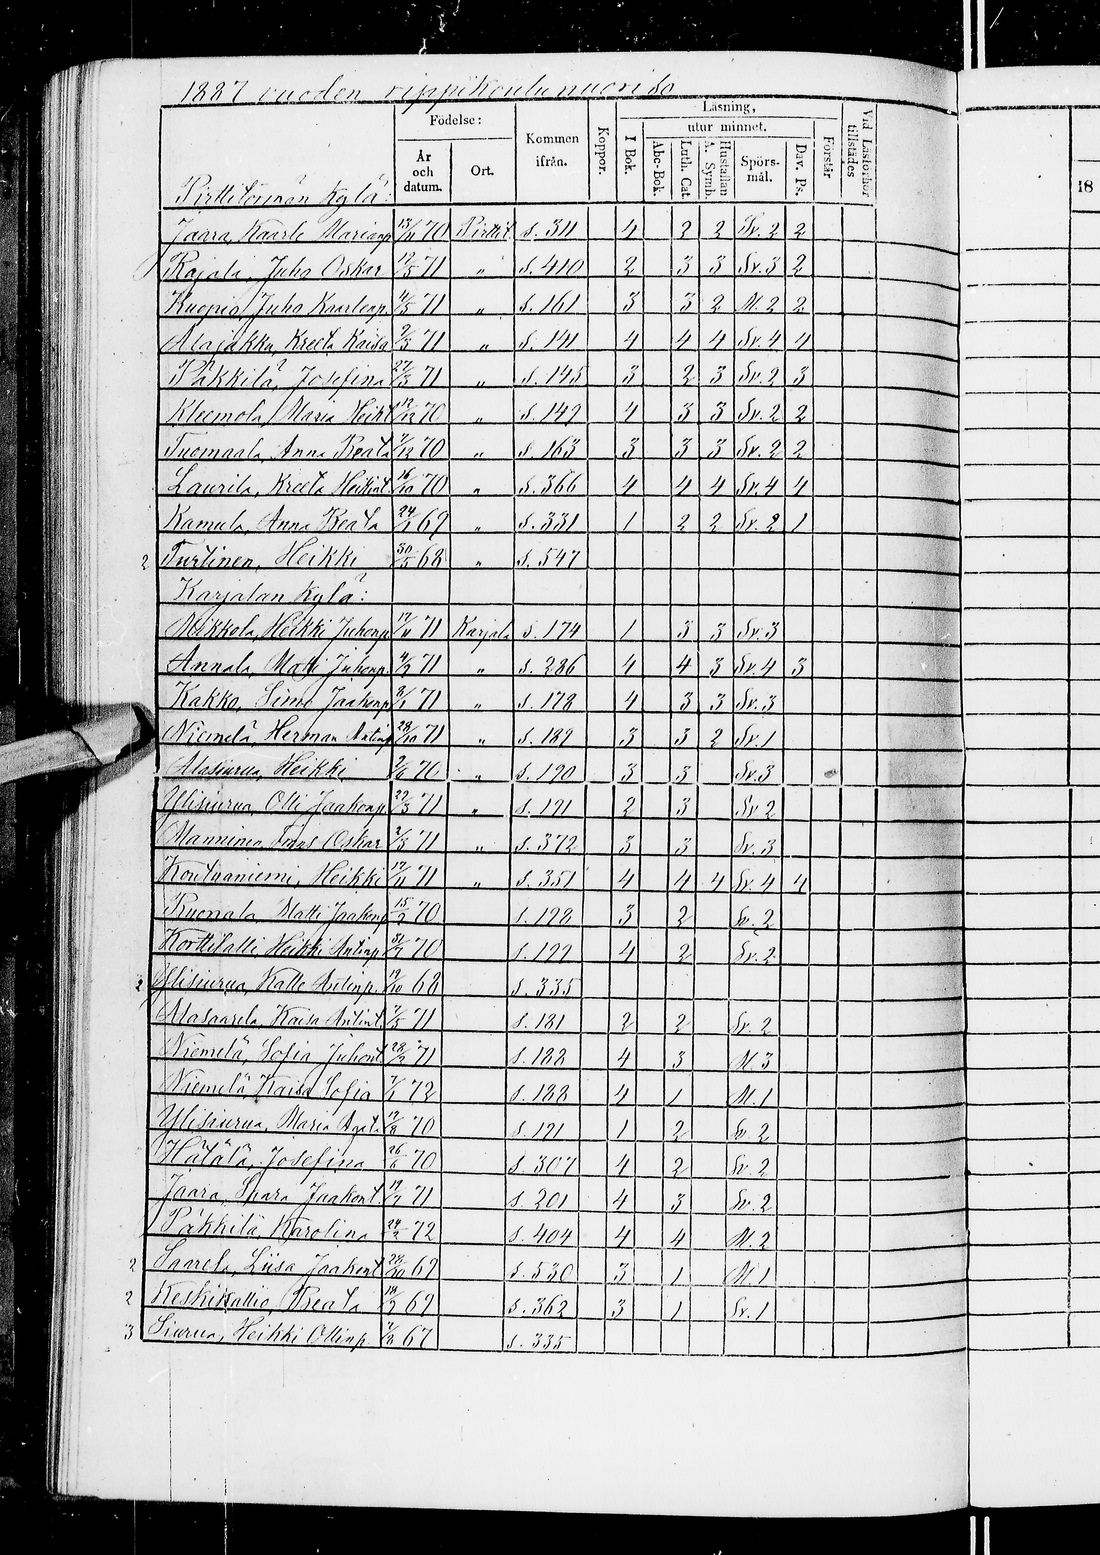 1887 vuoden rippikoulunuoriso
Födelse: Kommen ifrån. Koppor. Läsning, utur minnet. Förstår Vid Läsförhör tillstädes
År och datum. Ort. I Bok. Abc-Bok. Luth. Cat. Hustaflan A. Symb. Spörsmål. Dav. Ps.
18
Pirttitörmän Kylä:
Jaara, Kaarle 70 Pirttit. s. 311 4 2 2 Sv. 2 2
Rajala, Juho Oskar 12/5 71 " s. 410 2 3 3 Sv. 3 2
Kuopio, Juho Kaarlenp. 11/5 71 " s. 161 3 3 2 M. 2 2
Alajakka, Kreeta Kaisa 2/5 71 " s. 141 4 4 4 Sv. 4 4
Päkkilä, Josefina 71 " s. 145 3 2 3 Sv. 2 3
Kleemola, Maria Heikt. 12/12 70 " s. 149 4 3 3 Sv. 2 2
Tuomaala, Anna Beata 70 " s. 163 3 3 3 Sv. 2 2
Laurila, Kreeta Heikint. 16/10 70 " s. 366 4 4 4 Sv. 4 4
Kamula, Anna Beata 24/1 69 " s. 331 1 2 2 Sv. 2 1
2 Turtinen, Heikki 30/5 68 " s. 547
Karjalan Kylä:
Mikkola, Heikki Juhonp. 71 Karjala s. 174 1 3 3 Sv. 3
Annala, Matti Juhonp. 4/2 71 " s. 286 4 4 3 Sv. 4 3
Kakko, Simo Jaakonp. 8/1 71 " s. 178 4 3 3 Sv. 3
Niemelä, Herman Antinp. 28/10 71 " s. 189 3 3 2 Sv. 1
Alasiurua, Heikki 2/6 70 " s. 190 3 3 Sv. 3
Ylisiurua, Olli Jaakonp. 71 " s. 191 2 3 Sv. 2
Manninen, Oskar 2/3 71 " s. 372 3 3 Sv. 3
Kouttaniemi, Heikki 71 " s. 351 4 4 4 Sv. 4 4
Ruonala, Matti Jaakonp. 70 s. 198 3 2 Sv. 2
Korttikallio, Heikki Antinp. 70 s. 199 4 2 Sv. 2
2 Ylisiurua, Kalle Antinp. 19/10 68 s. 335
Alasaarela, Kaisa Antint. 71 s. 181 2 2 Sv. 2
Niemelä, Sofia Juhont. 28/2 71 s. 188 4 3 M. 3
Niemelä, Kaisa Sofia 7/1 72 s. 188 4 1 M. 1
Ylisiurua, Maria Agata 70 s. 191 1 2 Sv. 2
Hätälä, Josefina 26/6 70 s. 307 4 2 Sv. 2
Jaara, Jaakont. 71 s. 201 4 3 Sv. 2
Päkkilä, Karolina 72 s. 404 4 4 M. 2
2 Saarela, Liisa Jaakont. 69 s. 530 3 1 M. 1
2 Keskikallio, Beata 69 s. 362 3 1 Sv. 1
3 Siurua, Heikki Ollinp. 67 s. 335